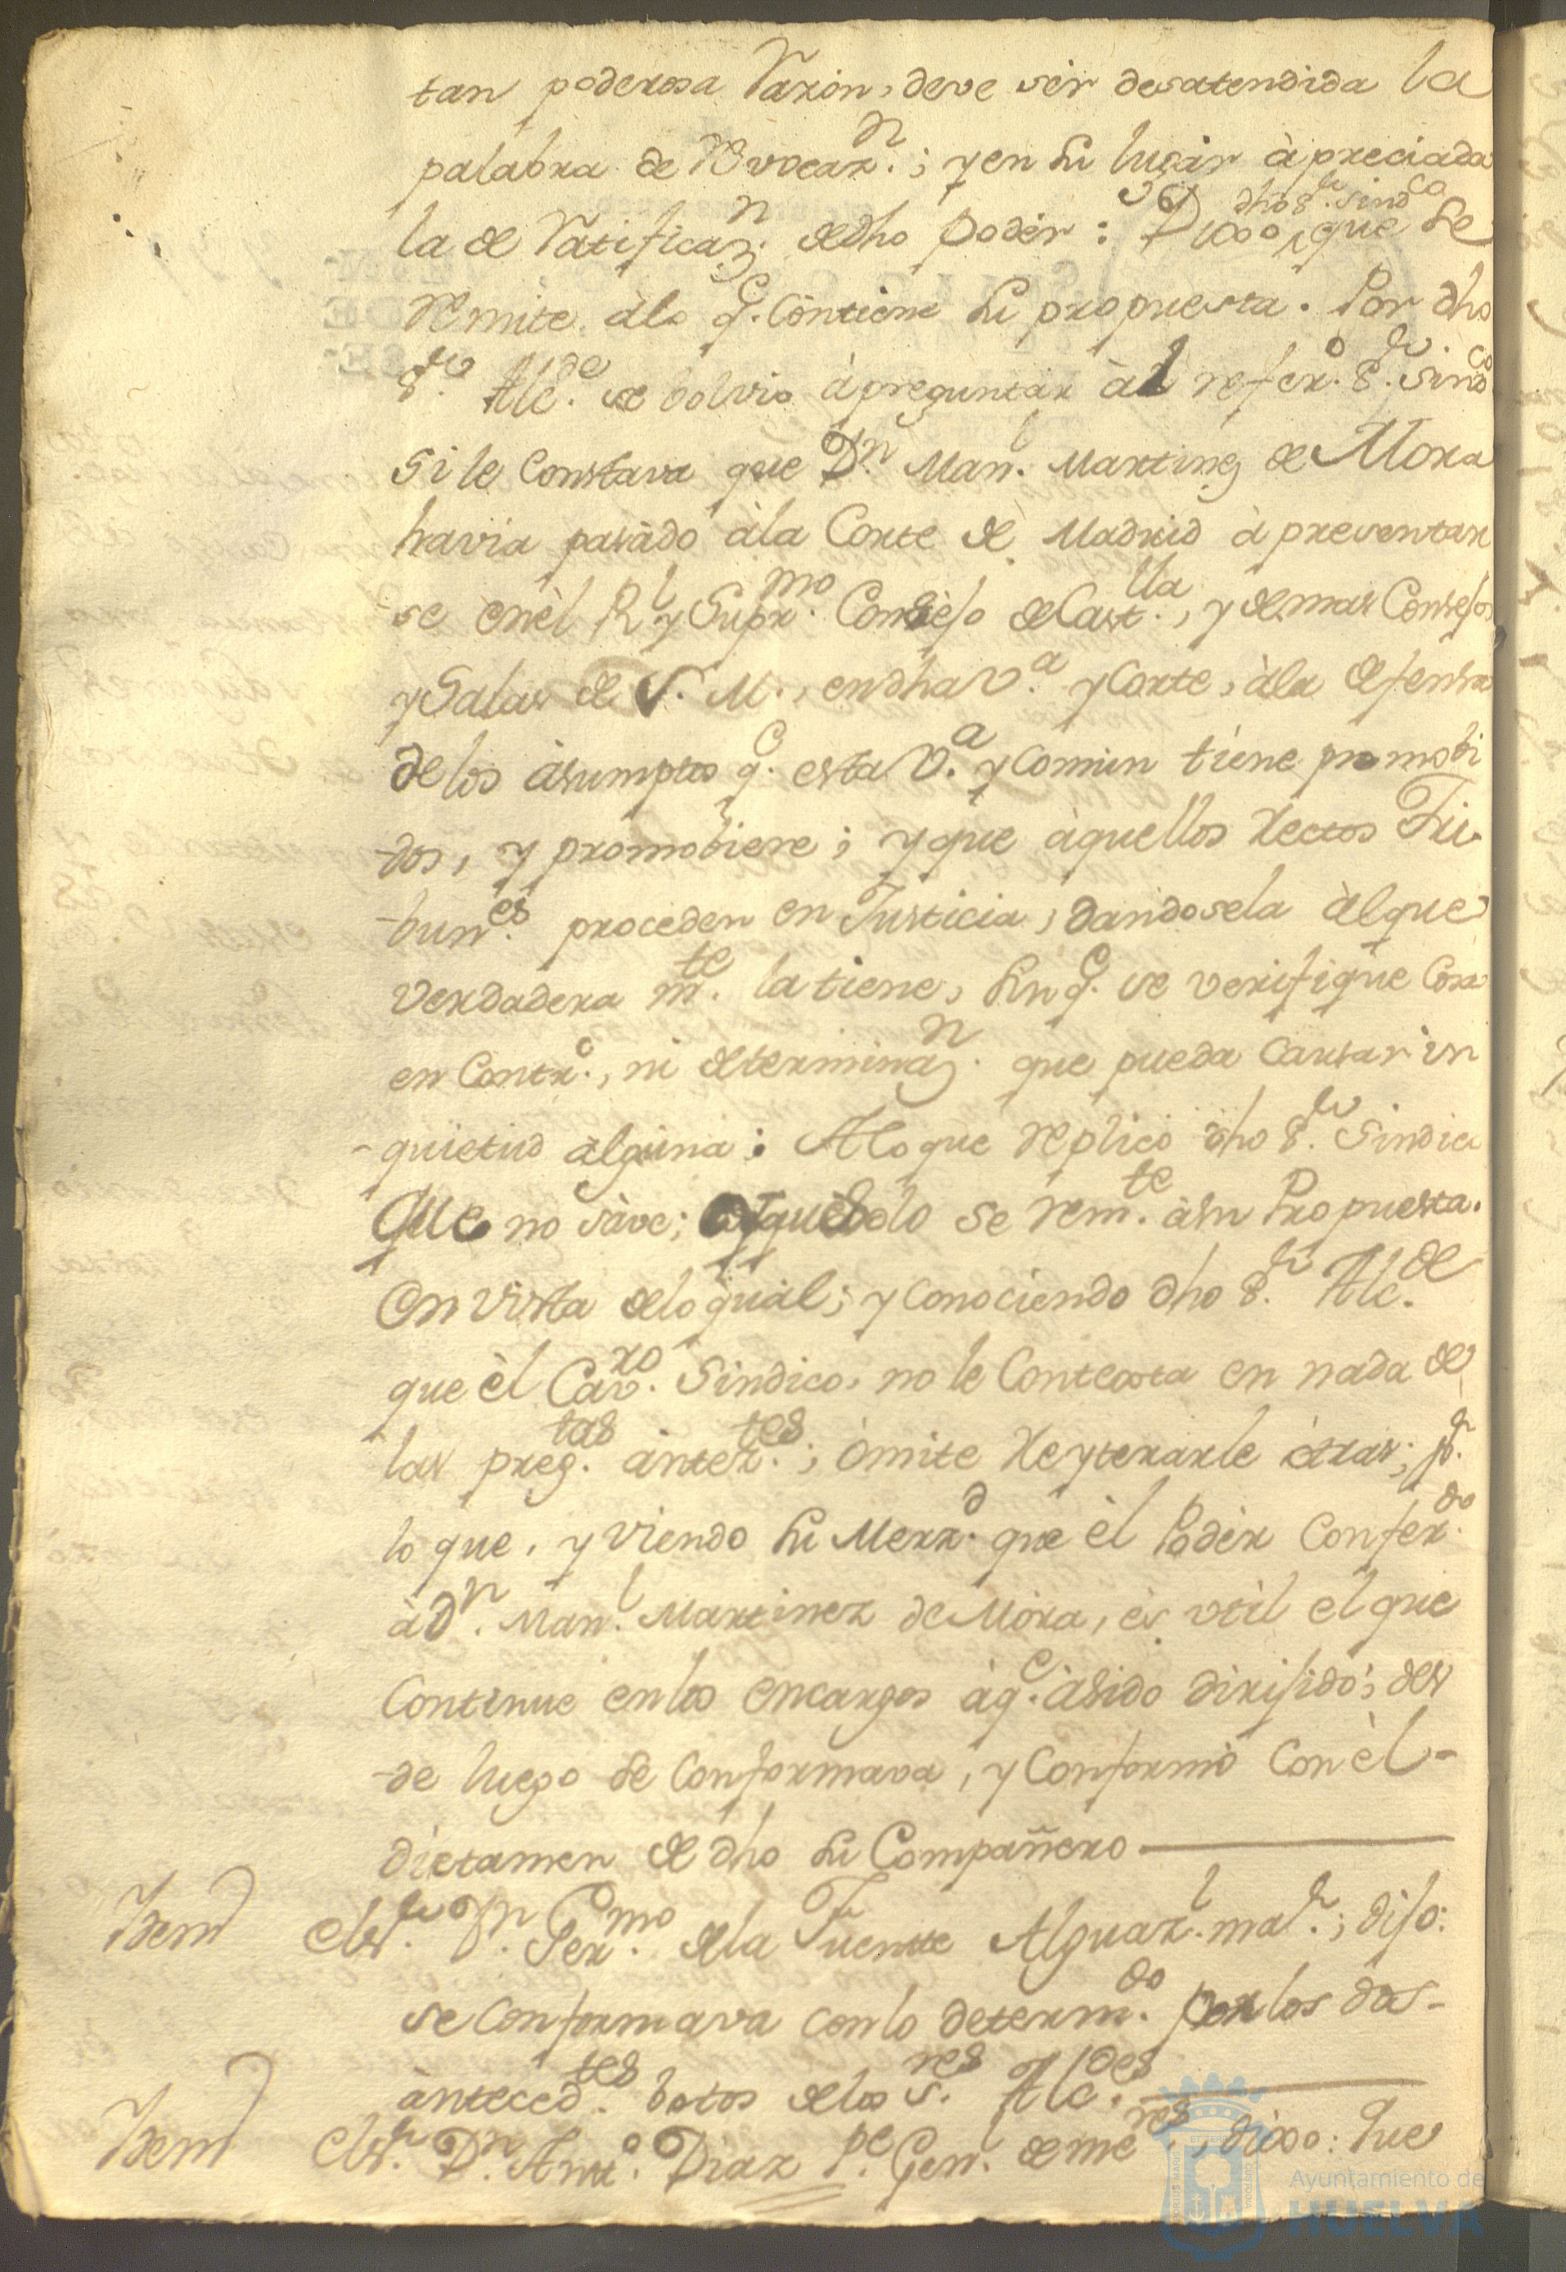 tan poderosa Razon, deve ser desatendida la
palabra de Revocaz.n; y en su lugar àpreciada
la de Ratificaz.n de dho Poder: Dixo dho S.r Sind.co, que se
remite àlo q.e Contiene su propuesta. Por dho
S.r Alc.de se bolvio à preguntar àl refer.o S.r Sind.co
si le Constava que D.n Man.l Martinez de Mora
havia pasàdo àla Corte de Madrid à presentar
se en èl R.l y Supr.mo Consejo de Cast.lla, y demas Consejos,
y Salas de S. M., en dha V.a y Corte, àla defensa
de los àsumptos q.e esta V.a y Comun tiene promobi
-dos, y promobiere; y que àquellos Rectos Tri-
-bun.es proceden en Justicia, dandosela àlque
verdadera m.te la tiene, sin q.e se verifique Cosa
en Contr.o, ni determinaz.n que pueda Causar in
-quietud alguna: Alo que replicò dho S.r Sindico
Que no sàve; y que solo se rem.te àsu Propuesta.
En vista delo qual; y conociendo dho S.r Alc.de
que èl Cav.ro Sindico, no le Contexta en nada de
las preg.tas ànter.tes; òmite Reyterarle òtras; p.r
lo que, y viendo su Merz.d que èl Podèr Confer.do
à D.n Man.l Martinez de Mora, ès vtil el que
Continue en los encargos àq.e àsido dirijido; des
-de luego se Conformava, y Conformò Con èl-
dictamen de dho su Compañero
Item El S.r D.n Ger.mo dela Fuente Alguaz.l ma.r; dijo:
se Conformava con lo determ.do por los dos-
ànteced.tes botos delos S.res Alc.des
Item El S.r D.n Ant.o Diaz P.e Gen.l de me.res, dixo: Que
Ayuntamiento de
HUELVA